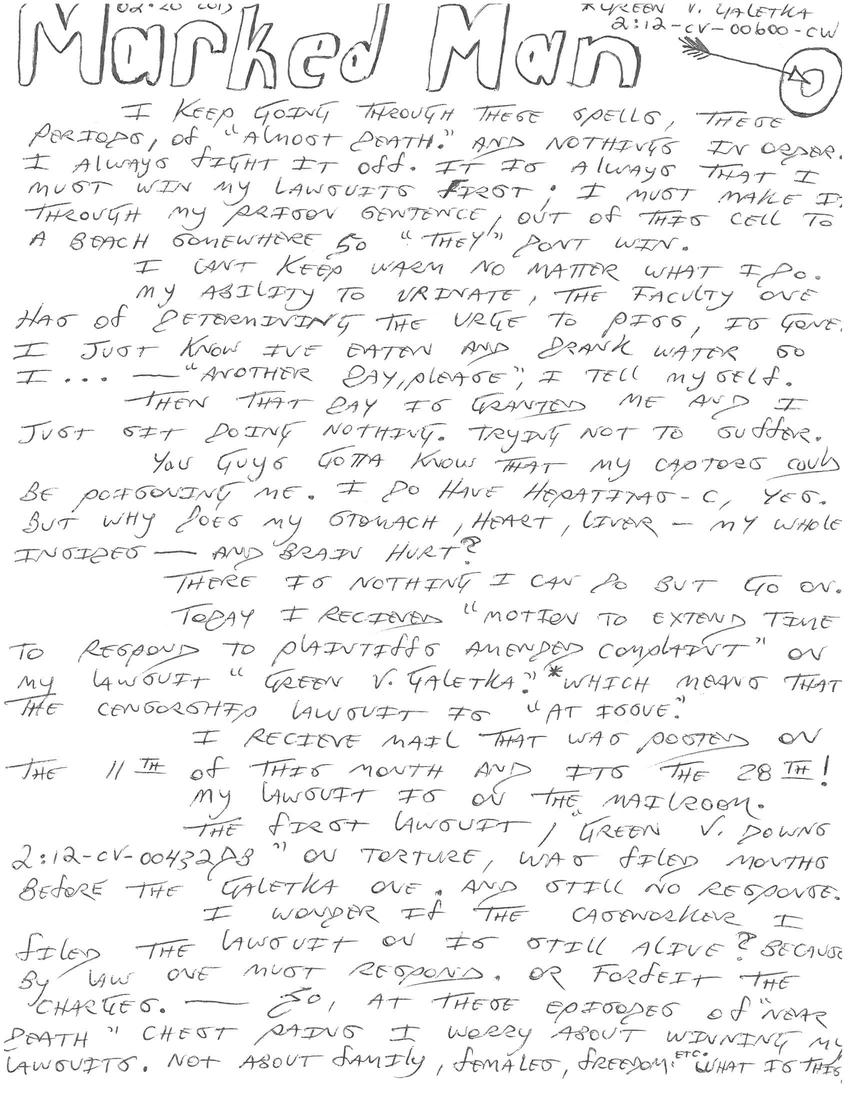 02-28 2013
* GREEN V. GALETKA
2:12-CV-00600-CW
Marked Man
I KEEP GOING THROUGH THESE SPELLS, THESE
PERIODS, OF "ALMOST DEATH." AND NOTHINGS IN ORDER.
I ALWAYS FIGHT IT OFF. IT IS ALWAYS THAT I
MUST WIN MY LAWSUITS FIRST; I MUST MAKE IT
THROUGH MY PRISON SENTENCE, OUT OF THIS CELL TO
A BEACH SOMEWHERE SO "THEY" DONT WIN.
I CANT KEEP WARM NO MATTER WHAT I DO.
MY ABILITY TO URINATE, THE FACULTY ONE
HAS OF DETERMINING THE URGE TO PISS, IS GONE.
I JUST KNOW IVE EATEN AND DRANK WATER SO
I... — "ANOTHER DAY, PLEASE", I TELL MYSELF.
THEN THAT DAY IS GRANTED ME AND I
JUST SIT DOING NOTHING. TRYING NOT TO SUFFER.
YOU GUYS GOTTA KNOW THAT MY CAPTORS COULD
BE POISONING ME. I DO HAVE HEPATITAS-C, YES.
BUT WHY DOES MY STOMACH, HEART, LIVER — MY WHOLE
INSIDES — AND BRAIN HURT?
THERE IS NOTHING I CAN DO BUT GO ON.
TODAY I RECIEVED "MOTION TO EXTEND TIME
TO RESPOND TO PLAINTIFFS AMENDED COMPLAINT" ON
MY LAWSUIT "GREEN V. GALETKA."* WHICH MEANS THAT
THE CENSORSHIP LAWSUIT IS "AT ISSUE."
I RECIEVE MAIL THAT WAS POSTED ON
THE 11TH OF THIS MONTH AND ITS THE 28TH!
MY LAWSUIT IS ON THE MAILROOM.
THE FIRST LAWSUIT, "GREEN V. DOWNS
2:12-CV-00432DB" ON TORTURE, WAS FILED MONTHS
BEFORE THE GALETKA ONE. AND STILL NO RESPONSE.
I WONDER IF THE CASEWORKER I
FILED THE LAWSUIT ON IS STILL ALIVE? BECAUSE
BY LAW ONE MUST RESPOND. OR FORFEIT THE
CHARGES. — SO, AT THESE EPISODES OF "NEAR
DEATH" CHEST PAINS I WORRY ABOUT WINNING MY
LAWSUITS. NOT ABOUT FAMILY, FEMALES, FREEDOM ETC. WHAT IS THIS